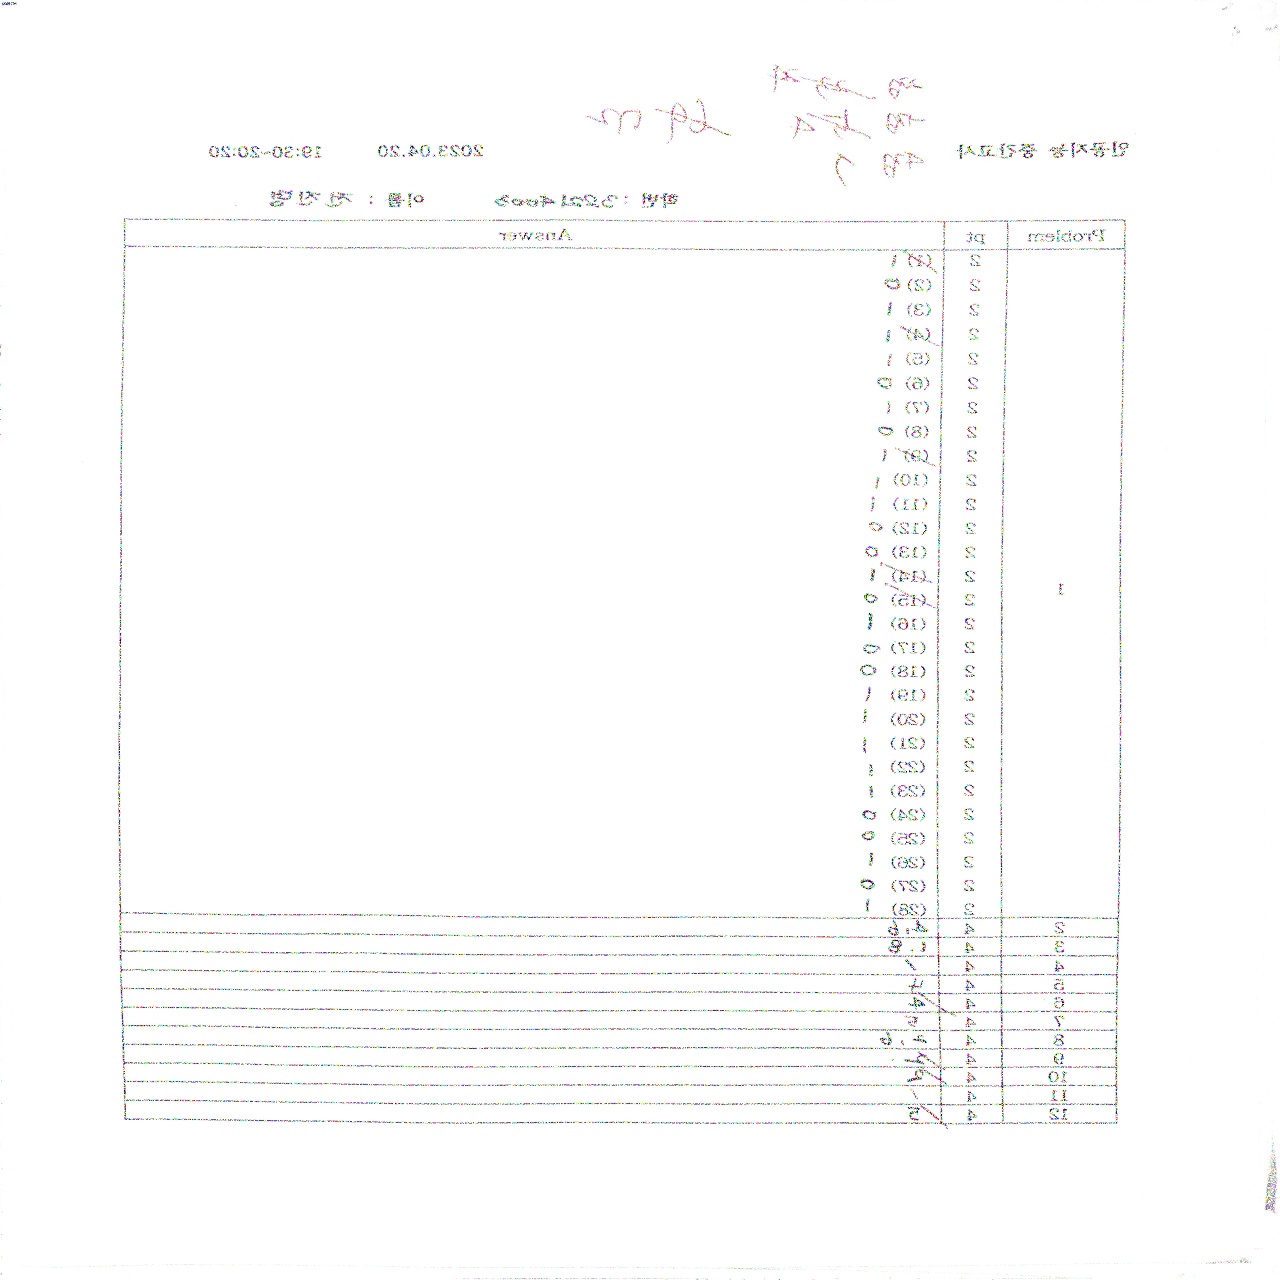 인공지능 중간고사 2023.04.20 19:30-20:20
학번 : 32214003 이름 :
Problem pt Answer
2 (1) 1
2 (2) 0
2 (3) 1
2 (4) 1
2 (5) 1
2 (6) 0
2 (7) 1
2 (8) 0
2 (9) 1
2 (10) 1
2 (11) 1
2 (12) 0
2 (13) 0
2 (14) 1
1 2 (15) 0
2 (16) 1
2 (17) 0
2 (18) 0
2 (19) 1
2 (20) 1
2 (21) 1
2 (22) 1
2 (23) 1
2 (24) 0
2 (25) 0
2 (26) 1
2 (27) 0
2 (28) 1
2 4
3 4
4 4
5 4
6 4
7 4
8 4
9 4
10 4
11 4
12 4